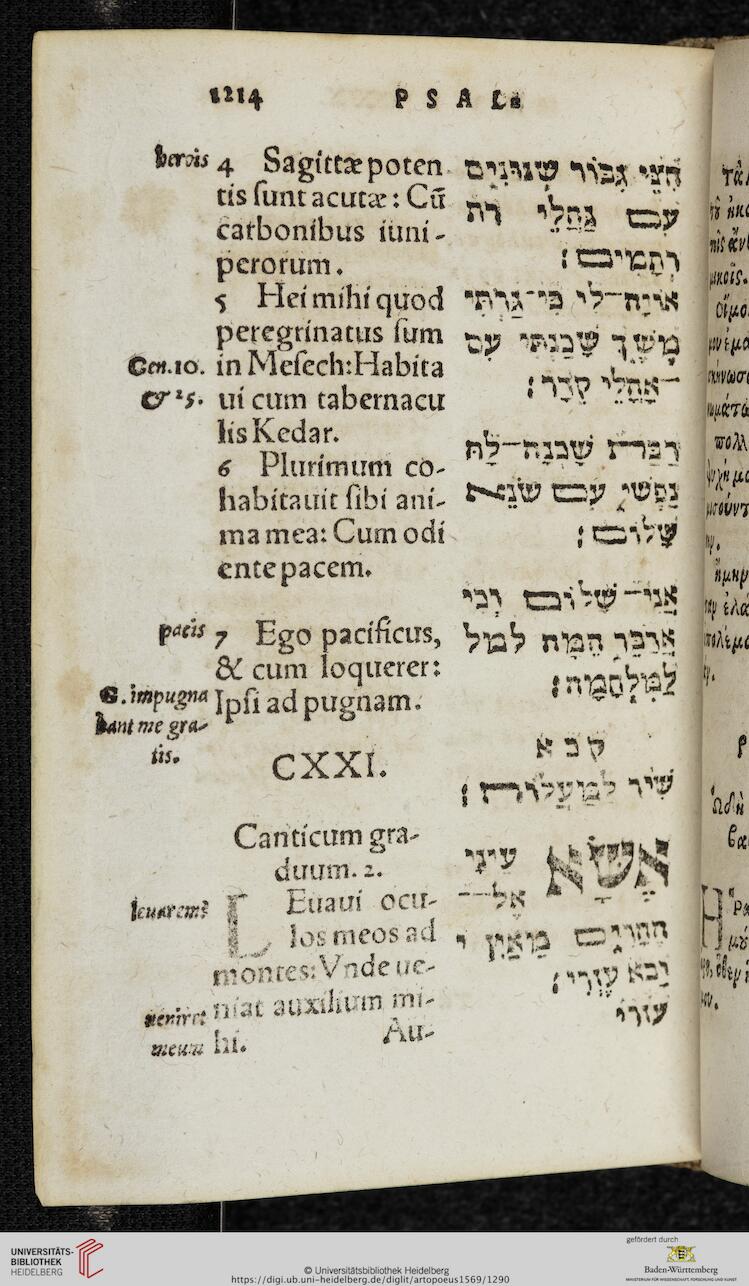 1214
PSAL.
herois
4 Sagittæ poten
tis sunt acutæ: Cũ
carbonibus iuni-
perorum.
5 Hei mihi quod
peregrinatus sum
Gen.10. in Mesech: Habita
& 25. ui cum tabernacu
lis Kedar.
6 Plurimum co-
habitauit sibi ani-
ma mea: Cum odi
ente pacem.
pacis
7 Ego pacificus,
& cum loquerer:
Ipsi ad pugnam.
G. impugna
bant me gra-
tis.
CXXI.
Canticum gra-
duum. 2.
LEuaui ocu-
los meos ad
montes: Vnde ue-
niat auxilium mi-
hi. Au-
leuarem?
ueniret
meum
חִצֵּי גִבּוֹר שְׁנוּנִים
עִם גַּחֲלֵי רת
רְתָמִים׃
אוֹיָה־לִי כִּי־גַרְתִּי
מֶשֶׁךְ שָׁכַנְתִּי עִם
־אָהֳלֵי קֵדָר׃
רַבַּת שָׁכְנָה־לָּהּ
נַפְשִׁי עִם שׂוֹנֵא
שָׁלוֹם׃
אֲנִי־שָׁלוֹם וְכִי
אֲדַבֵּר הֵמָּה למל
לַמִּלְחָמָה׃
ק כ א
שִׁיר לַמַּעֲלוֹת׃
אֶשָּׂא עֵינַי
אֶל־־
הֶהָרִים מֵאַיִן י
יָבֹא עֶזְרִי׃
עזרי
UNIVERSITÄTS-
BIBLIOTHEK
HEIDELBERG
© Universitätsbibliothek Heidelberg
https://digi.ub.uni-heidelberg.de/diglit/artopoeus1569/1290
gefördert durch
Baden-Württemberg
MINISTERIUM FÜR WISSENSCHAFT, FORSCHUNG UND KUNST